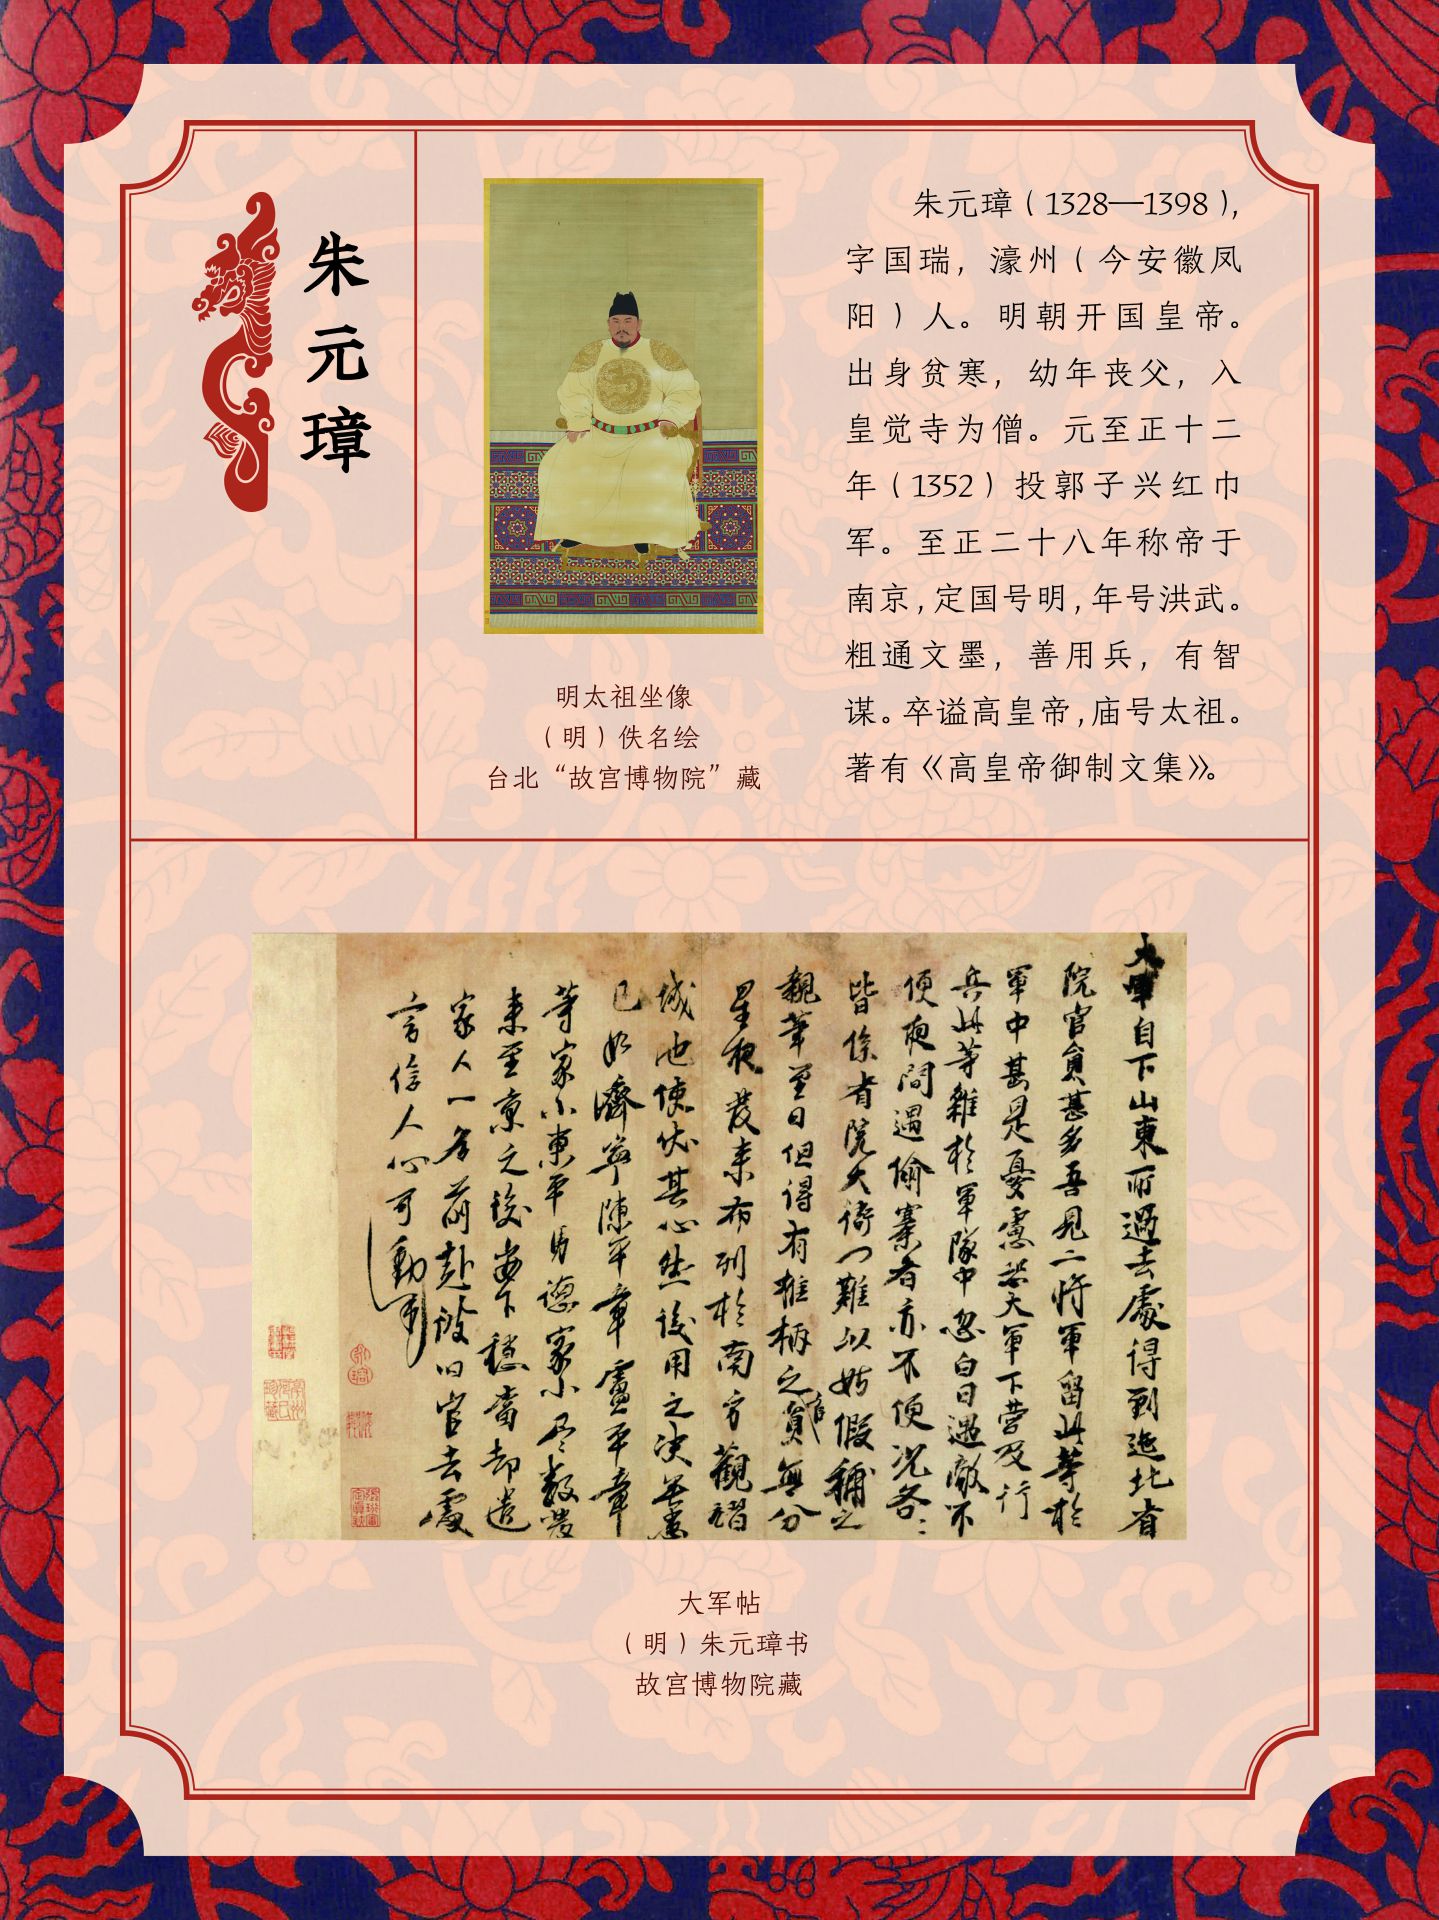 朱元璋
朱元璋（1328—1398），
字国瑞，濠州（今安徽凤
阳）人。明朝开国皇帝。
出身贫寒，幼年丧父，入
皇觉寺为僧。元至正十二
年（1352）投郭子兴红巾
军。至正二十八年称帝于
南京，定国号明，年号洪武。
粗通文墨，善用兵，有智
谋。卒谥高皇帝，庙号太祖。
著有《高皇帝御制文集》。
明太祖坐像
（明）佚名绘
台北“故宫博物院”藏
大軍自下山東所過去處得到迤北省
院官員甚多吾見二將軍留此等於
軍中甚是憂慮恐大軍下營及行
兵此等雜於軍隊中忽白日遇敵不
便夜間遇偷寨者亦不便況各:
皆係省院大衙門難以姑假補之
親筆至日但得有椎柄之官員無分
星夜發来布列於南方觀習
城池使伏其心然後用之決無患
已如濟寧陳平章盧平章
等家小東平馬德家小尽数發
来至京之後安下穩當却遣
家人一名前赴彼旧官去處
言信人心可動
大军帖
（明）朱元璋书
故宫博物院藏